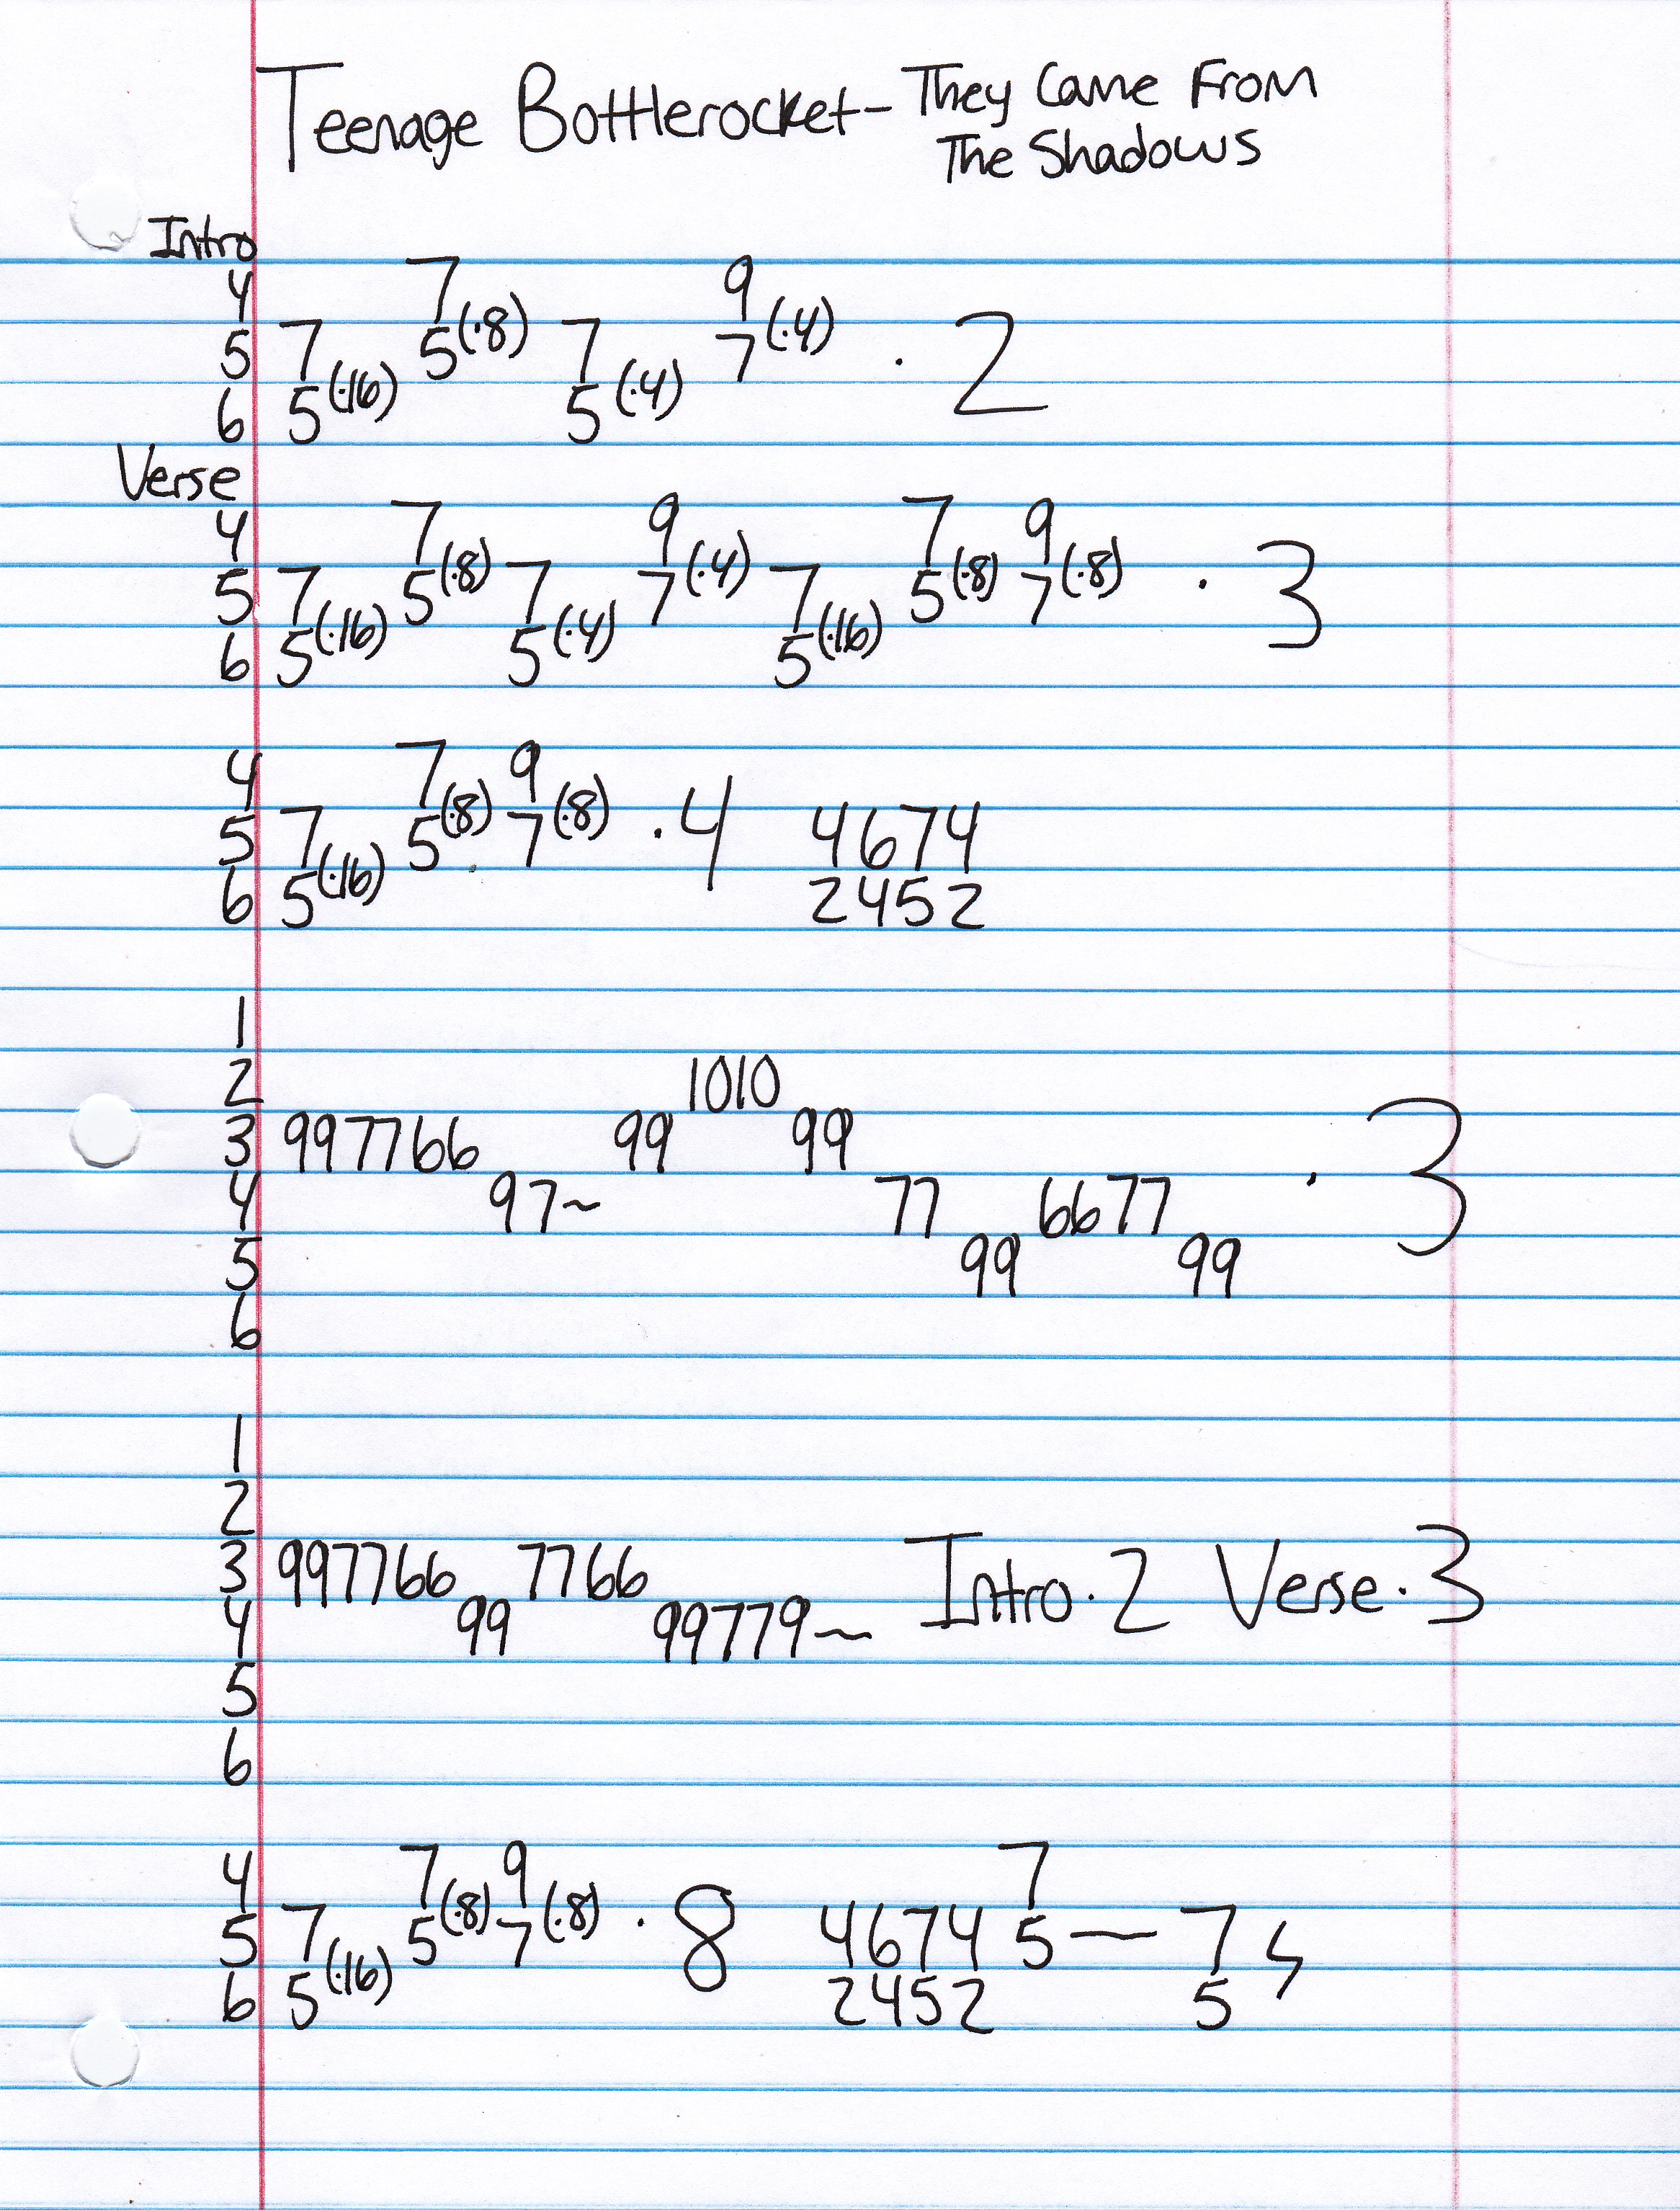 Teenage Bottlerocket - They Came From
The Shadows
Intro
4 7(·8) 9(·4)
5 7 5 7 7 · 2
6 5(·16) 5(·4)
Verse
4 7 9 7 9
5 7 5(·8) 7 7(·4) 7 5(·8) 7(·8) · 3
6 5(·16) 5(·4) 5(·16)
4 7 9
5 7 5(·8) 7(·8) · 4 4674
6 5(·16) 2452
1
2 1010
3 997766 99 99 · 3
4 97~ 77 6677
5 99 99
6
1
2
3 997766 7766 Intro · 2 Verse · 3
4 99 99779~
5
6
4 7 9 7
5 7 5(·8) 7(·8) · 8 4674 5— 7
6 5(·16) 2452 5